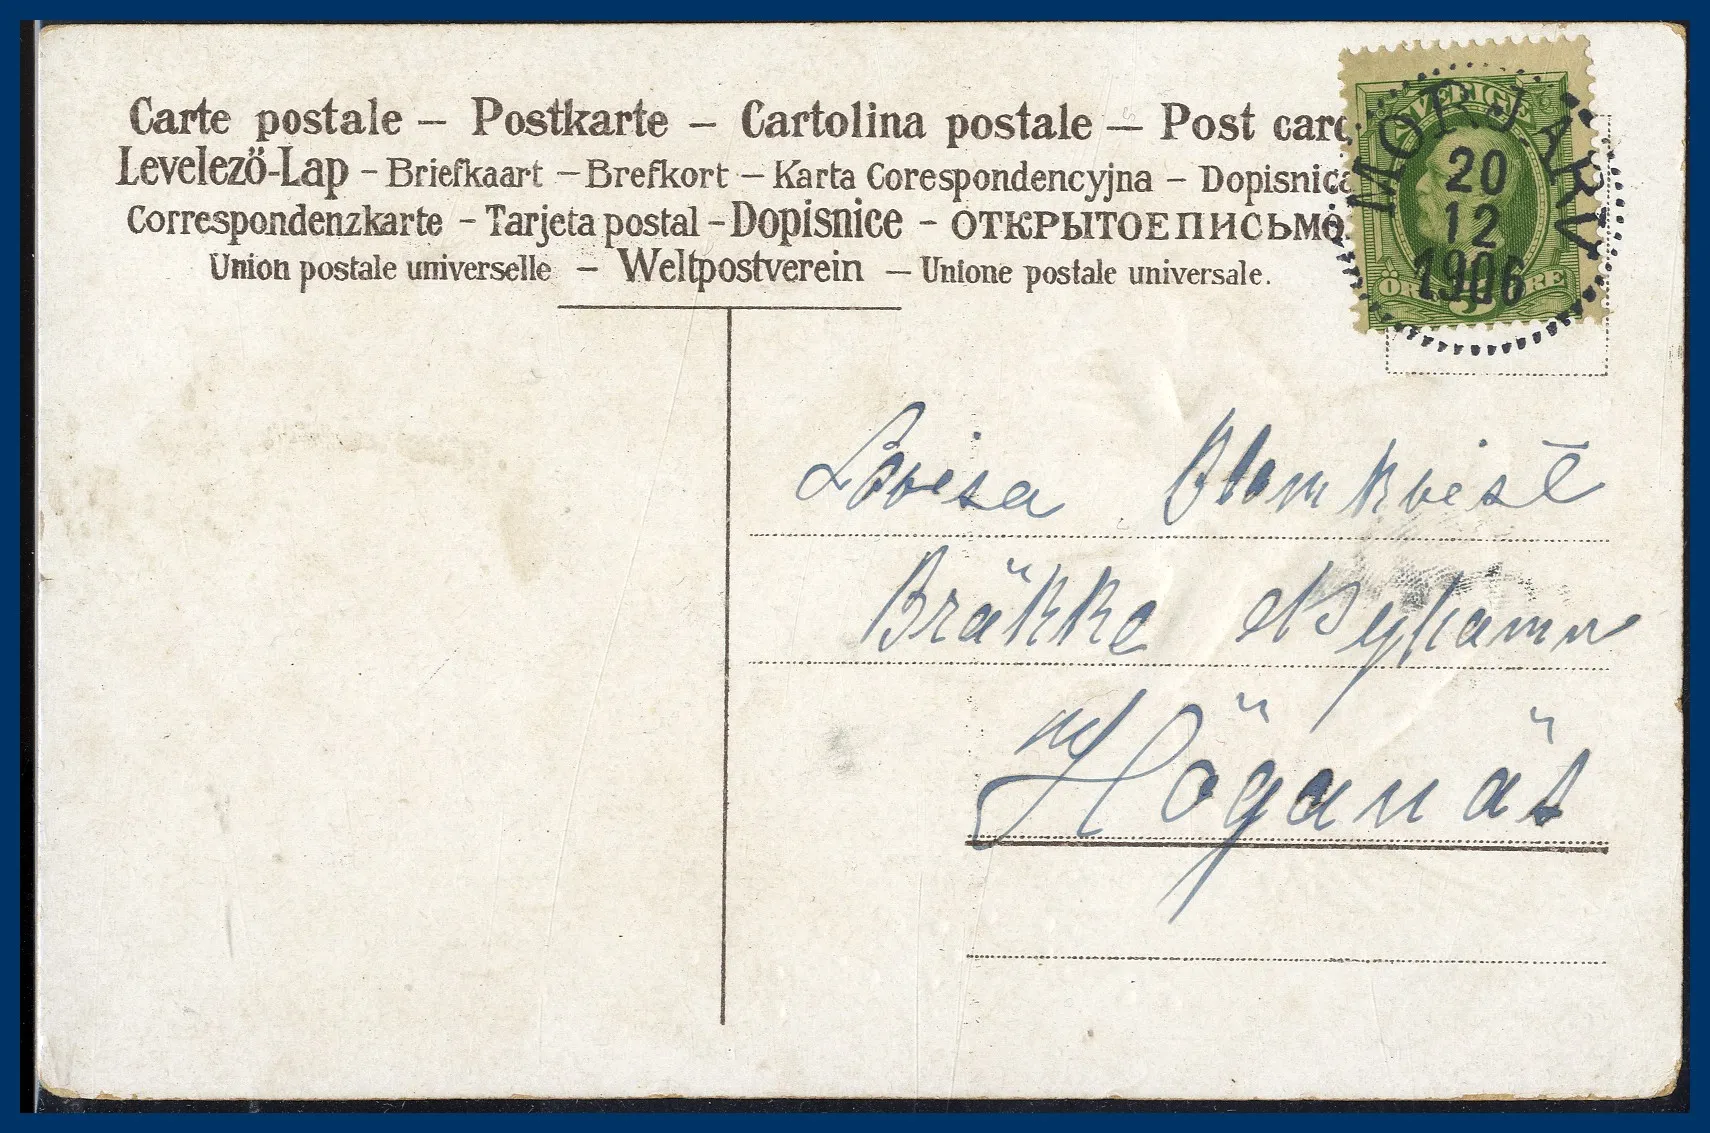 Carte postale – Postkarte – Cartolina postale – Post card
Levelező-Lap – Briefkaart – Brefkort – Karta Corespondencyjna – Dopisnica
Correspondenzkarte – Tarjeta postal – Dopisnice – ОТКРЫТОЕ ПИСЬМО.
Union postale universelle – Weltpostverein – Unione postale universale.
SVERIGE
5
ÖRE ÖRE
MORJÄRV
20
12
1906
Lovisa Blomkvist
Bräkke Nyhamn
Höganäs